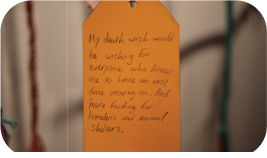 My death wish would
be wishing for
everyone who knew
me to have an easy
time moving on. And
more funding for
homeless and animal
shelters.